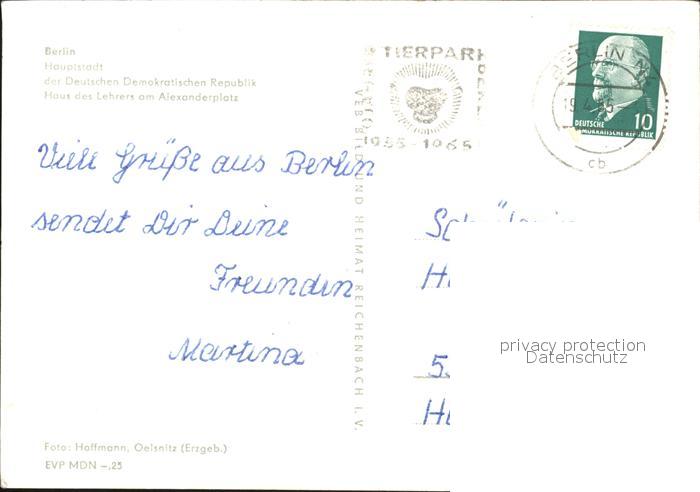 Berlin
Hauptstadt
der Deutschen Demokratischen Republik
Haus des Lehrers am Alexanderplatz
TIERPARK
BERLIN
1955-1965
BERLIN
cb
10
DEUTSCHE
DEMOKRATISCHE REPUBLIK
Viele Grüße aus Berlin
sendet Dir Deine
Freundin
Martina
VEB BILD UND HEIMAT REICHENBACH I. V.
privacy protection
Datenschutz
Foto: Hoffmann, Oelsnitz (Erzgeb.)
EVP MDN –,25